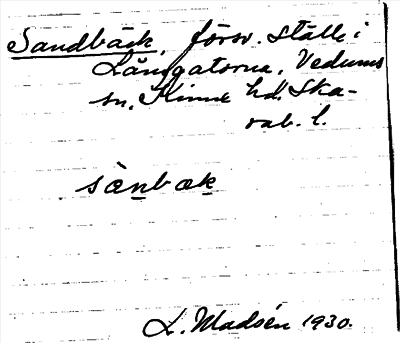 Sandbäck, försv. ställe i
Långatorna, Vedums
sn, Kinne hd. Ska-
rab. l.
sænbæk
L. Madsén 1930.